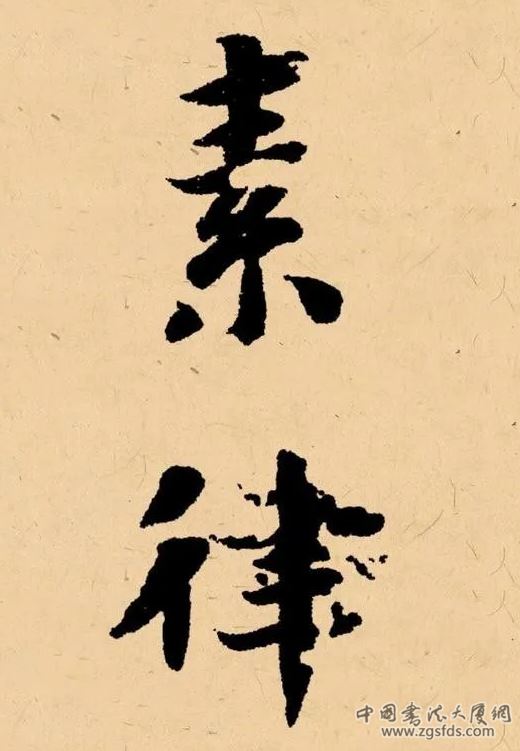 素
律
中国书法大厦网
www.zgsfds.com